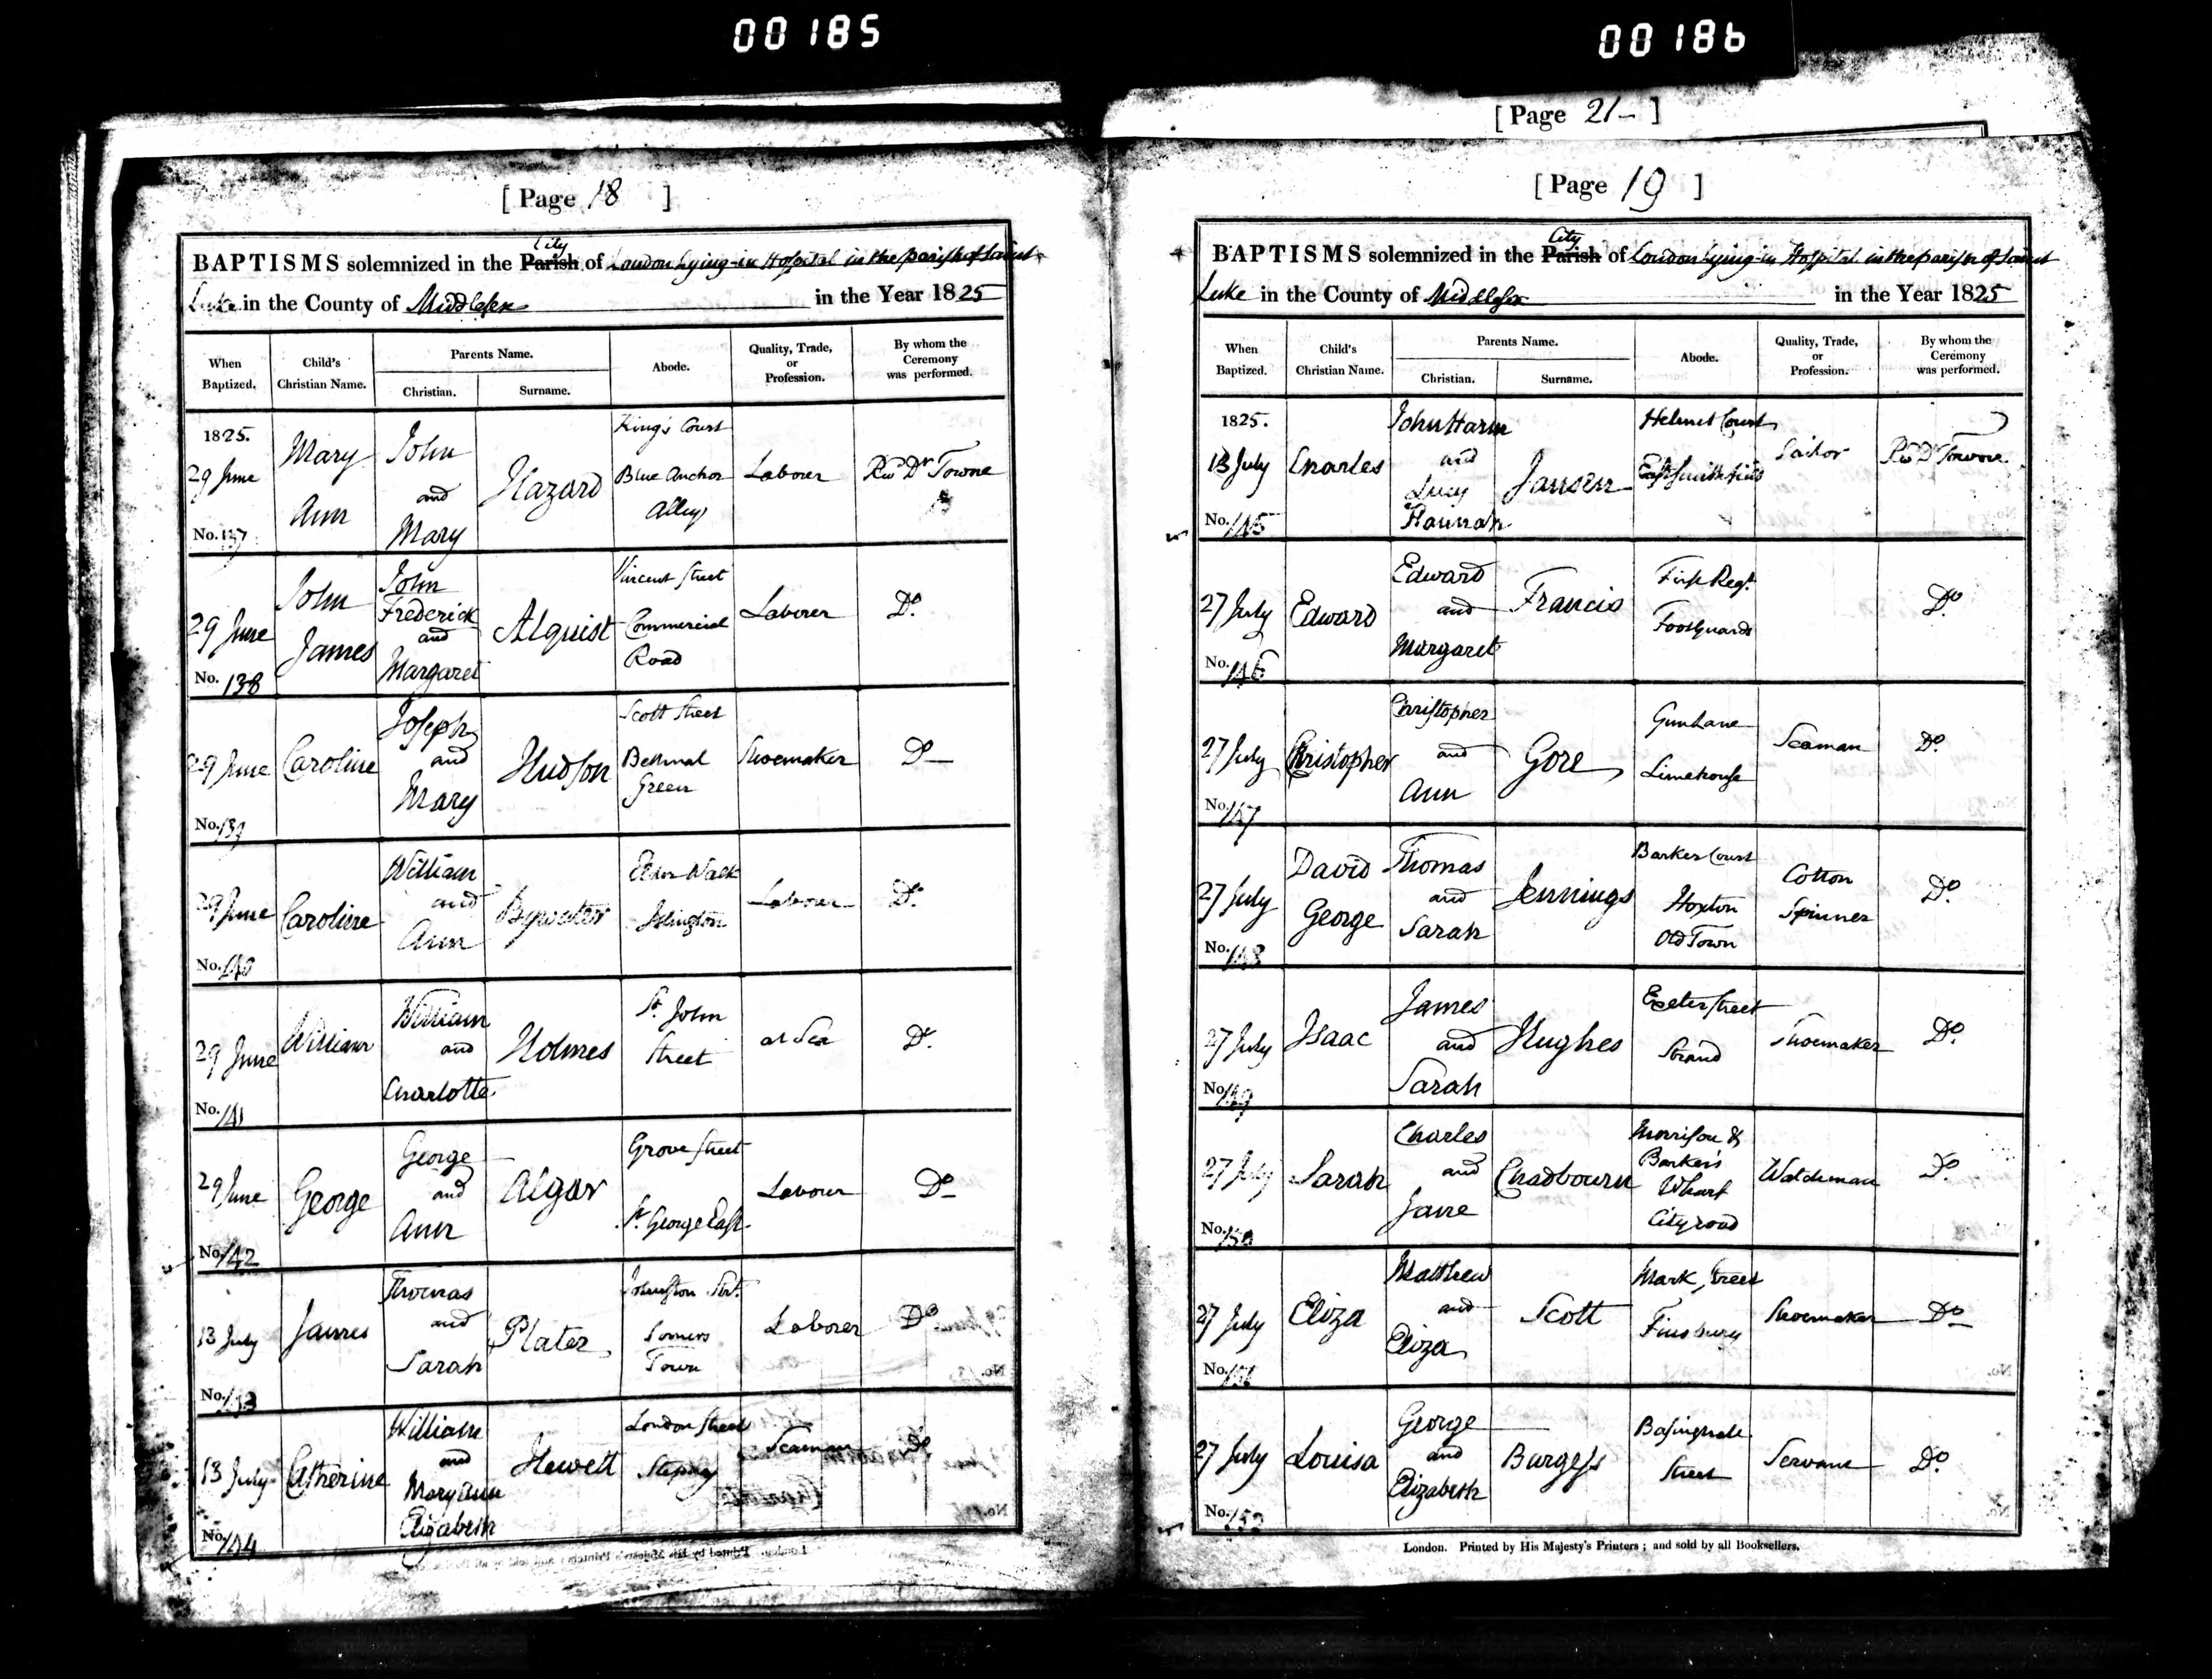 00185
00186
[ Page 21- ]
[ Page 18 ]
BAPTISMS solemnized in the Parish City of London Lying-in Hospital in the parish of Saint
Luke in the County of Middlesex in the Year 1825
When Baptized.
Child's Christian Name.
Parents Name.
Christian.
Surname.
Abode.
Quality, Trade, or Profession.
By whom the Ceremony was performed.
1825.
29 June
No. 137
Mary
Ann
John
and
Mary
Hazard
King's Court
Blue Anchor
Alley
Laborer
Rev Dr Towne
29 June
No. 138
John
James
John
Frederick
and
Margaret
Alquist
Vincent Street
Commercial
Road
Laborer
Do
29 June
No. 139
Caroline
Joseph
and
Mary
Hudson
Scott Street
Bethnal
Green
Shoemaker
Do
29 June
No. 140
Caroline
William
and
Ann
Bywater
Walk
Islington
Labourer
Do
29 June
No. 141
William
William
and
Charlotte
Holmes
St. John
Street
at Sea
Do
29 June
No. 142
George
George
and
Ann
Algar
Grove Street
St. George East
Labourer
Do
13 July
No. 143
James
Thomas
and
Sarah
Plater
Johnston Str.
Somers
Town
Laborer
Do
13 July
No. 144
Catherine
William
and
Mary Ann
Elizabeth
Hewett
London Street
Stepney
Seaman
Do
[ Page 19 ]
BAPTISMS solemnized in the Parish City of London Lying-in Hospital in the parish of Saint
Luke in the County of Middlesex in the Year 1825
When Baptized.
Child's Christian Name.
Parents Name.
Christian.
Surname.
Abode.
Quality, Trade, or Profession.
By whom the Ceremony was performed.
1825.
13 July
No. 145
Charles
John Harm
and
Lucy
Hannah
Jansen
Helmet Court
East Smithfield
Sailor
Rev Dr Towne
27 July
No. 146
Edward
Edward
and
Margaret
Francis
First Regt.
Foot Guards
Do
27 July
No. 147
Christopher
Christopher
and
Ann
Gore
Gun Lane
Limehouse
Seaman
Do
27 July
No. 148
David
George
Thomas
and
Sarah
Jennings
Barker Court
Hoxton
Old Town
Cotton
Spinner
Do
27 July
No. 149
Isaac
James
and
Sarah
Hughes
Exeter Street
Strand
Shoemaker
Do
27 July
No. 150
Sarah
Charles
and
Jane
Chadbourn
Morrison &
Barker's
Wharf
City road
Watchman
Do
27 July
No. 151
Eliza
Matthew
and
Eliza
Scott
Mark Street
Finsbury
Shoemaker
Do
27 July
No. 152
Louisa
George
and
Elizabeth
Burgess
Basinghale
Street
Servant
Do
London. Printed by His Majesty's Printers; and sold by all Booksellers.